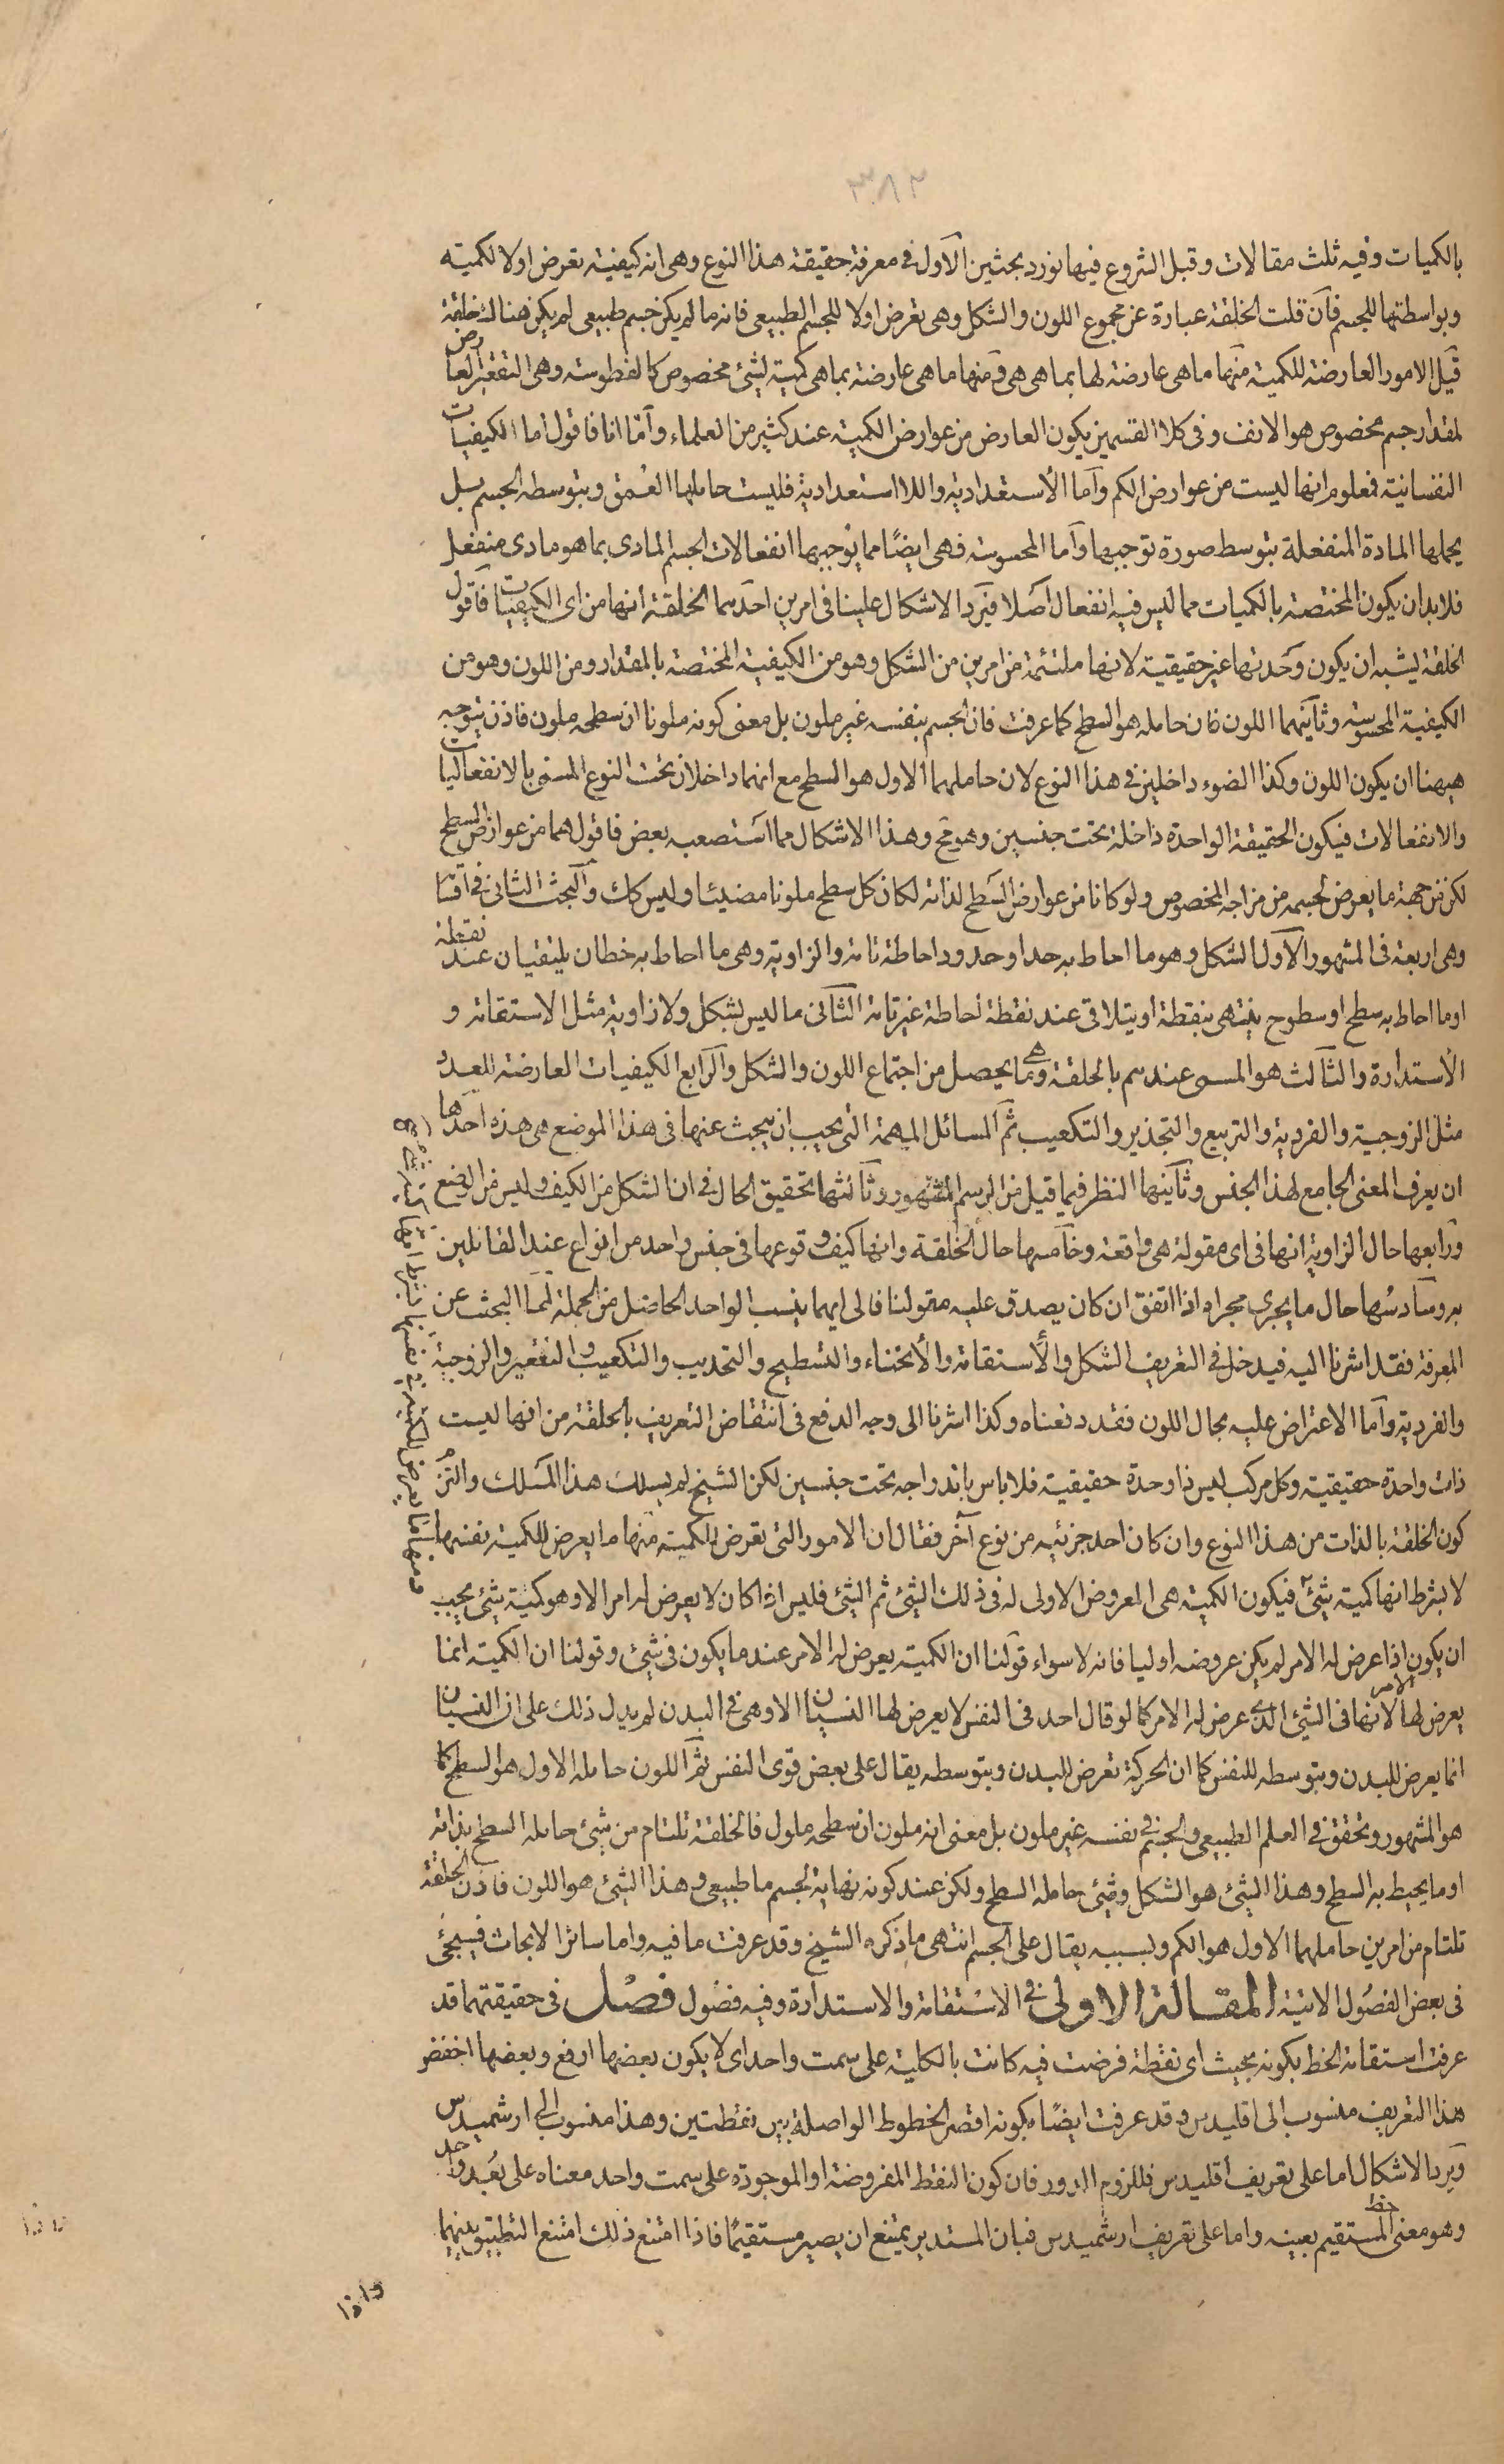 ٣٨٢
بالكميات وفيه ثلث مقالات وقبل الشروع فيها نورد بحثين الاول فى معرفة حقيقة هذا النوع وهى انه كيفية تعرض اولا لكميته
وبواسطتها للجسم فان قلت الخلقة عبارة عن مجموع اللون والشكل وهى تعرض اولا للجسم الطبيعى فانه ما لم يكن جسم طبيعى لم يكن هناك خلقة
قيل الامور العارضة للكمية منها ما هى عارضة لها بما هى هى ومنها ما هى عارضة بما هى كمية لشئ مخصوص كالفطوسة وهى التقعير العارض
لمقدار جسم مخصوص هو الانف وفى كلا القسمين يكون العارض من عوارض الكمية عند كثير من العلماء واما انا فاقول اما الكيفيات
النفسانية فمعلوم انها ليست من عوارض الكم واما الاستعدادية واللااستعدادية فليست حاملها العمق وبتوسطه الجسم بل
يحملها المادة المنفعلة بتوسط صورة توجبها واما المحسوسة فهى ايضًا مما يوجبها انفعالات الجسم المادى بما هو مادى منفعل
فلا بد ان يكون المختصة بالكميات مما ليس فيه انفعال اصلا فيرد الاشكال علينا فى امرين احدهما الخلقة انها من اى الكيفيات فاقول
الخلقة يشبه ان يكون وحدتها غير حقيقية لانها ملتئمة من امرين من الشكل وهو من الكيفية المختصة بالمقدار ومن اللون وهو من
الكيفية المحسوسة وثانيهما اللون فان حامله هو السطح كما عرفت فان الجسم بنفسه غير ملون بل معنى كونه ملونا ان سطحه ملون فاذن يتوجه
هيهنا ان يكون اللون وكذا الضوء داخلين فى هذا النوع لان حاملهما الاول هو السطح مع انهما داخلان تحت النوع المسمى بالانفعاليات
والانفعالات فيكون الحقيقة الواحدة داخلة تحت جنسين وهو مح وهذا الاشكال مما استصعبه بعض فاقول هما من عوارض السطح
لكن من جهة ما يعرض لجسمه من مزاجه المخصوص ولو كانا من عوارض السطح لذاته لكان كل سطح ملونا مضيئا وليس كك والبحث الثانى فى اقسا
وهى اربعة فى المشهور الاول الشكل وهو ما احاط به حد او حدود احاطة تامة والزاوية وهى ما احاط به خطان يلتقيان عند نقطة
او ما احاط به سطح او سطوح ينتهى بنقطة او يتلاقى عند نقطة احاطة غير تامة الثانى ما ليس بشكل ولا زاوية مثل الاستقامة و
الاستدارة والثالث هو المسمى عندهم بالخلقة وهى ما يحصل من اجتماع اللون والشكل والرابع الكيفيات العارضة للعدد
مثل الزوجية والفردية والتربيع والتجذير والتكعيب ثم المسائل المهمة التى يجب ان يبحث عنها فى هذا الموضع هى هذه احدها
ان يعرف المعنى الجامع لهذا الجنس وثانيها النظر فيما قيل من الرسم المشهور وثالثها تحقيق الحال فى ان الشكل من الكيف وليس من الوضع
ورابعها حال الزاوية انها فى اى مقولة هى واقعة وخامسها حال الخلقة وانها كيف وقوعها فى جنس واحد من انواع عند القائلين
به وسادسها حال ما يجرى مجراه اذا اتفق ان كان يصدق عليه مقولنا فالى ايهما ينسب الواحد الحاصل من الجملة اما البحث عن
المعرفة فقد اشرنا اليه فيدخل فى التعريف الشكل والاستقامة والانحناء والتسطيح والتحديب والتكعيب والتقعير والزوجية
والفردية واما الاعتراض عليه بحال اللون فقد دفعناه وكذا اشرنا الى وجه الدفع فى انتقاض التعريف بالخلقة من انها ليست
ذات واحدة حقيقية وكل مركب ليس ذا وحدة حقيقية فلا باس باندراجه تحت جنسين لكن الشيخ لم يسلك هذا المسلك والتزم
كون الخلقة بالذات من هذا النوع وان كان احد جزئيه من نوع آخر فقال ان الامور التى تعرض للكمية منها ما يعرض للكمية بنفسها
لا بشرط انها كمية شئ فيكون الكمية هى المعروض الاولى له فى ذلك الشئ ثم الشئ فليس اذا كان لا يعرض له امر الا وهو كمية شئ يجب
ان يكون اذا عرض له الامر لم يكن عروضه اوليا فانه لا سواء قولنا ان الكمية يعرض له الامر عندما يكون فى شئ وقولنا ان الكمية انما
يعرض لها الامر لانها فى الشئ الذى عرض له الامر كما لو قال احد فى النفس لا يعرض لها النسيان الا وهى فى البدن لم يدل ذلك على ان النسيان
انما يعرض للبدن وبتوسطه للنفس كما ان الحركة تعرض للبدن وبتوسطه يقال على بعض قوى النفس ثم اللون حامله الاول هو السطح كما
هو المشهور وتحقق فى العلم الطبيعى والجسم فى نفسه غير ملون بل معنى انه ملون ان سطحه ملول فالخلقة تلتام من شئ حامله السطح بذاته
او ما يحيط به السطح وهذا الشئ هو الشكل وشئ حامله السطح ولكن عند كونه نهاية لجسم ما طبيعى وهذا الشئ هو اللون فاذن الخلقة
تلتام من امرين حاملهما الاول هو الكم وبسببه يقال على الجسم انتهى ما ذكره الشيخ وقد عرفت ما فيه واما سائر الابحاث فسيجئ
فى بعض الفصول الاتية المقالة الاولى فى الاستقامة والاستدارة وفيه فصول فصل فى حقيقتهما قد
عرفت استقامة الخط بكونه بحيث اى نقطة فرضت فيه كانت بالكلية على سمت واحد اى لا يكون بعضها ارفع وبعضها اخفض
هذا التعريف منسوب الى اقليدس وقد عرفت ايضًا بكونه اقصر الخطوط الواصلة بين نقطتين وهذا منسوب الى ارشميدس
ويرد الاشكال اما على تعريف اقليدس فللزوم الدور فان كون النقط المفروضة او الموجودة على سمت واحد معناه على بعد واحد
وهو معنى الخط المستقيم بعينه واما على تعريف ارشميدس فبان المستدير يمتنع ان يصير مستقيمًا فاذا امتنع ذلك امتنع التطبيق بينهما
ومنها ما يعرض للكمية فى نفسها بشرط انها كمية شئ
واذا